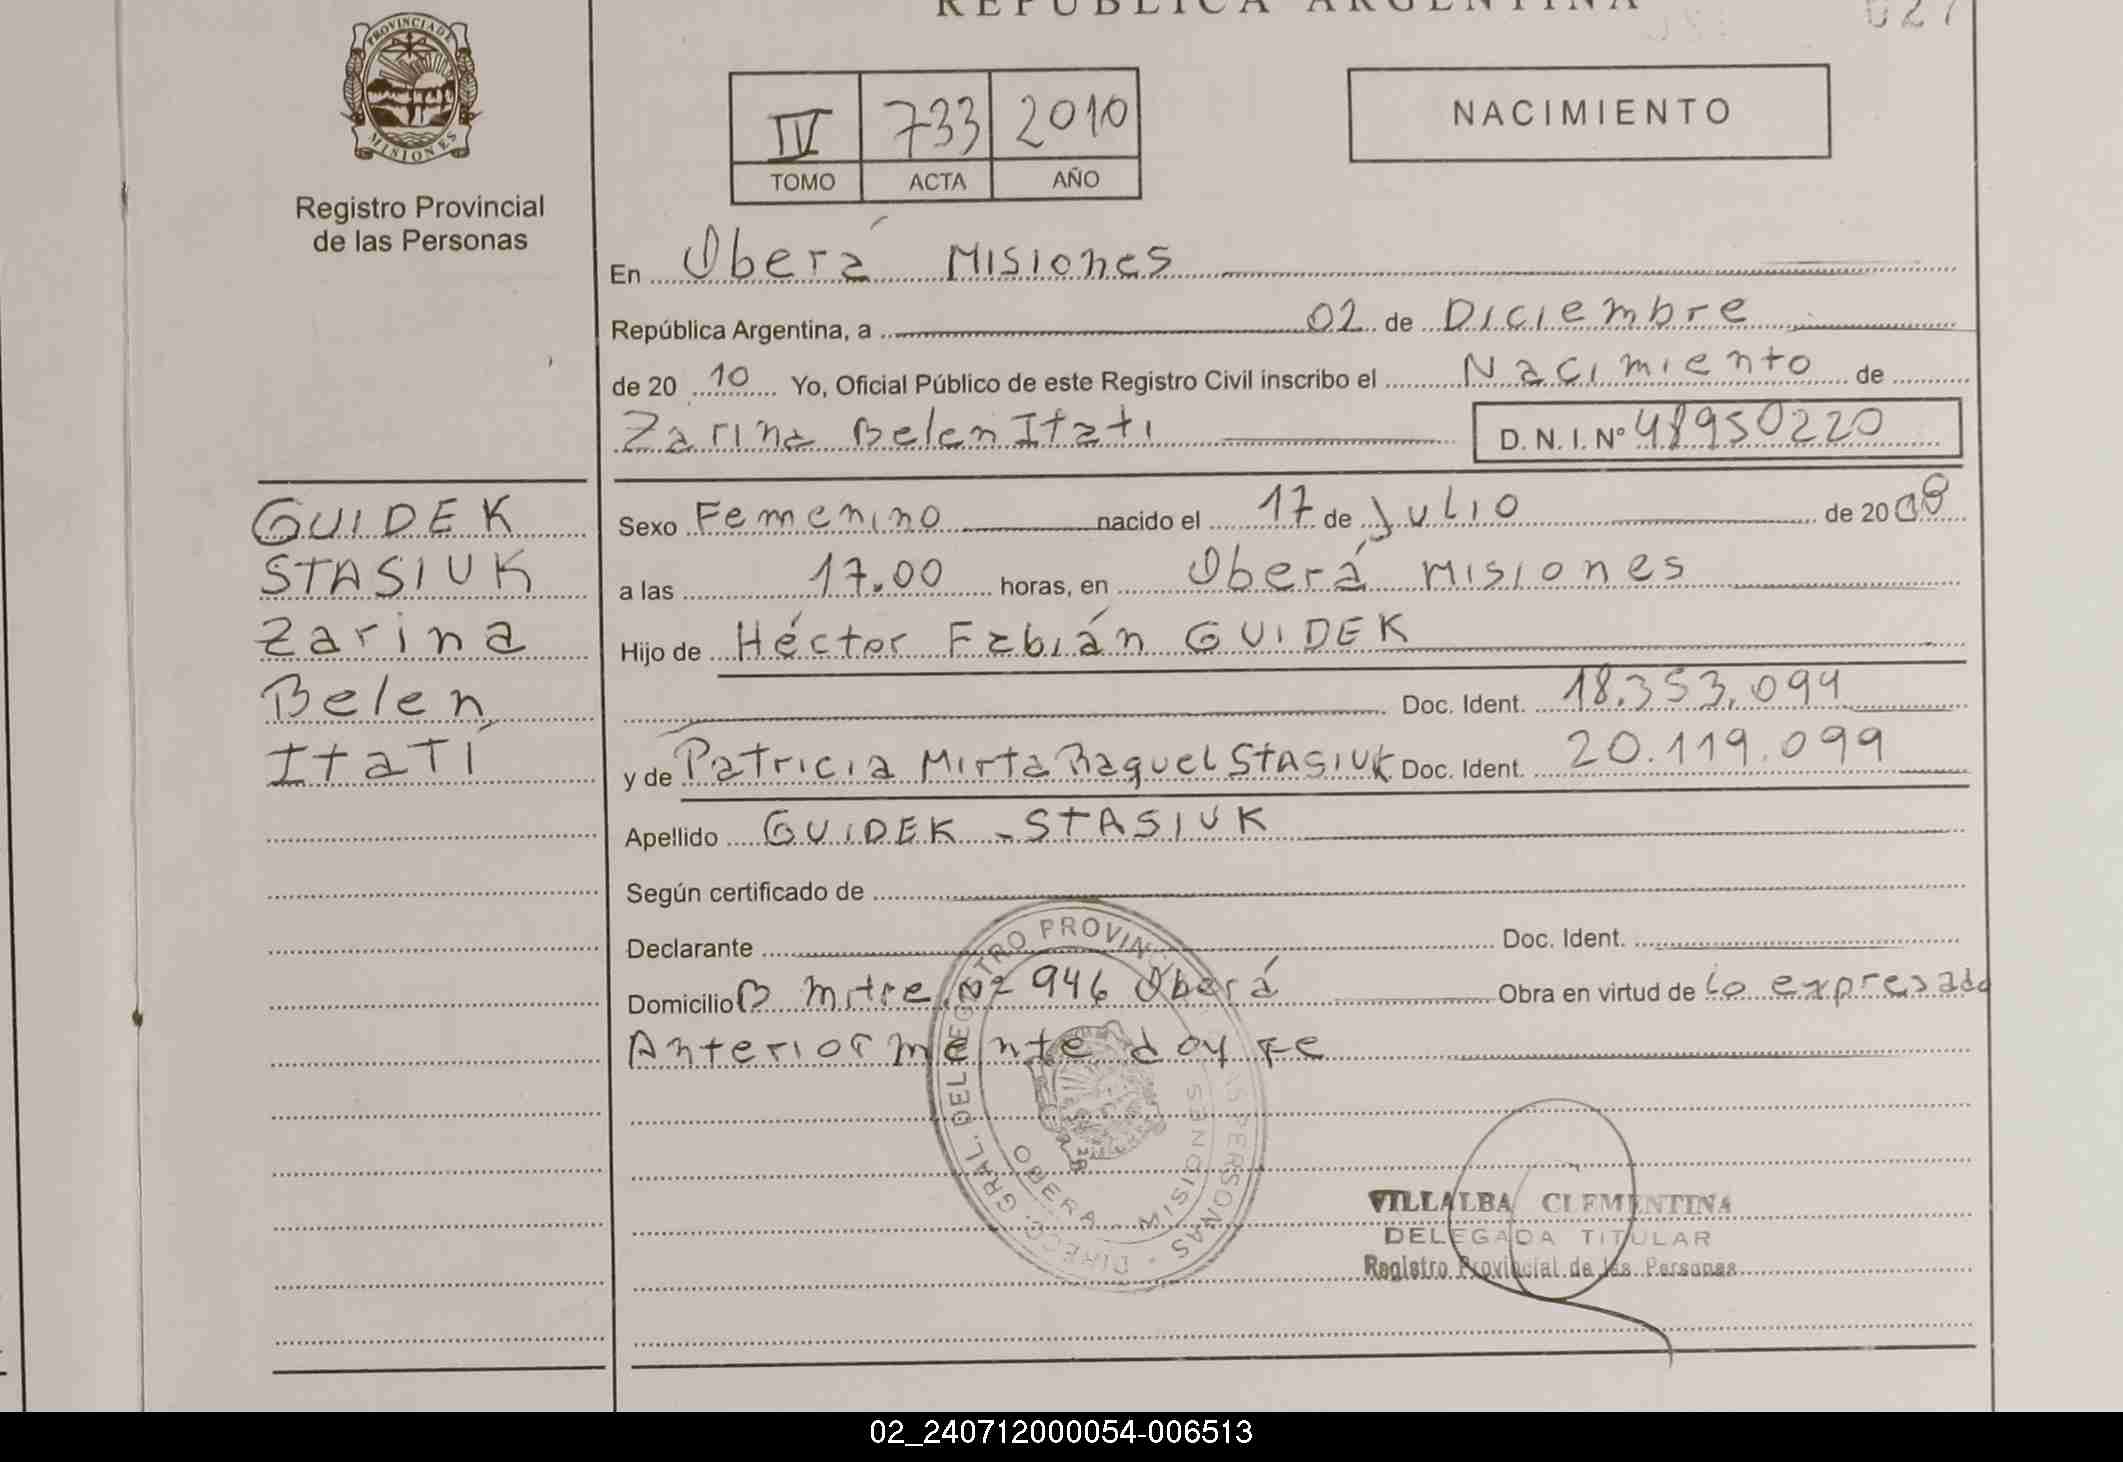 REPUBLICA ARGENTINA
027
PROVINCIA DE MISIONES
Registro Provincial
de las Personas
IV 733 2010
TOMO ACTA AÑO
NACIMIENTO
En Oberá Misiones
República Argentina, a 02 de Diciembre
de 20 10 Yo, Oficial Público de este Registro Civil inscribo el Nacimiento de
Zarina Belen Itati D. N. I. Nº 48950220
GUIDEK
STASIUK
Zarina
Belen
Itatí
Sexo Femenino nacido el 17 de Julio de 2008
a las 17.00 horas, en Oberá Misiones
Hijo de Héctor Fabián GUIDEK
Doc. Ident. 18.353.094
y de Patricia Mirta Raquel STASIUK Doc. Ident. 20.119.099
Apellido GUIDEK - STASIUK
Según certificado de
Declarante Doc. Ident.
Domicilio B Mitre Nº 946 Oberá Obra en virtud de lo expresado
Anteriormente doy Fe
DIRECC. GRAL. DEL REGISTRO PROVIN LAS PERSONAS
OBERA - MISIONES
VILLALBA CLEMENTINA
DELEGADA TITULAR
Registro Provincial de las Personas
02_240712000054-006513